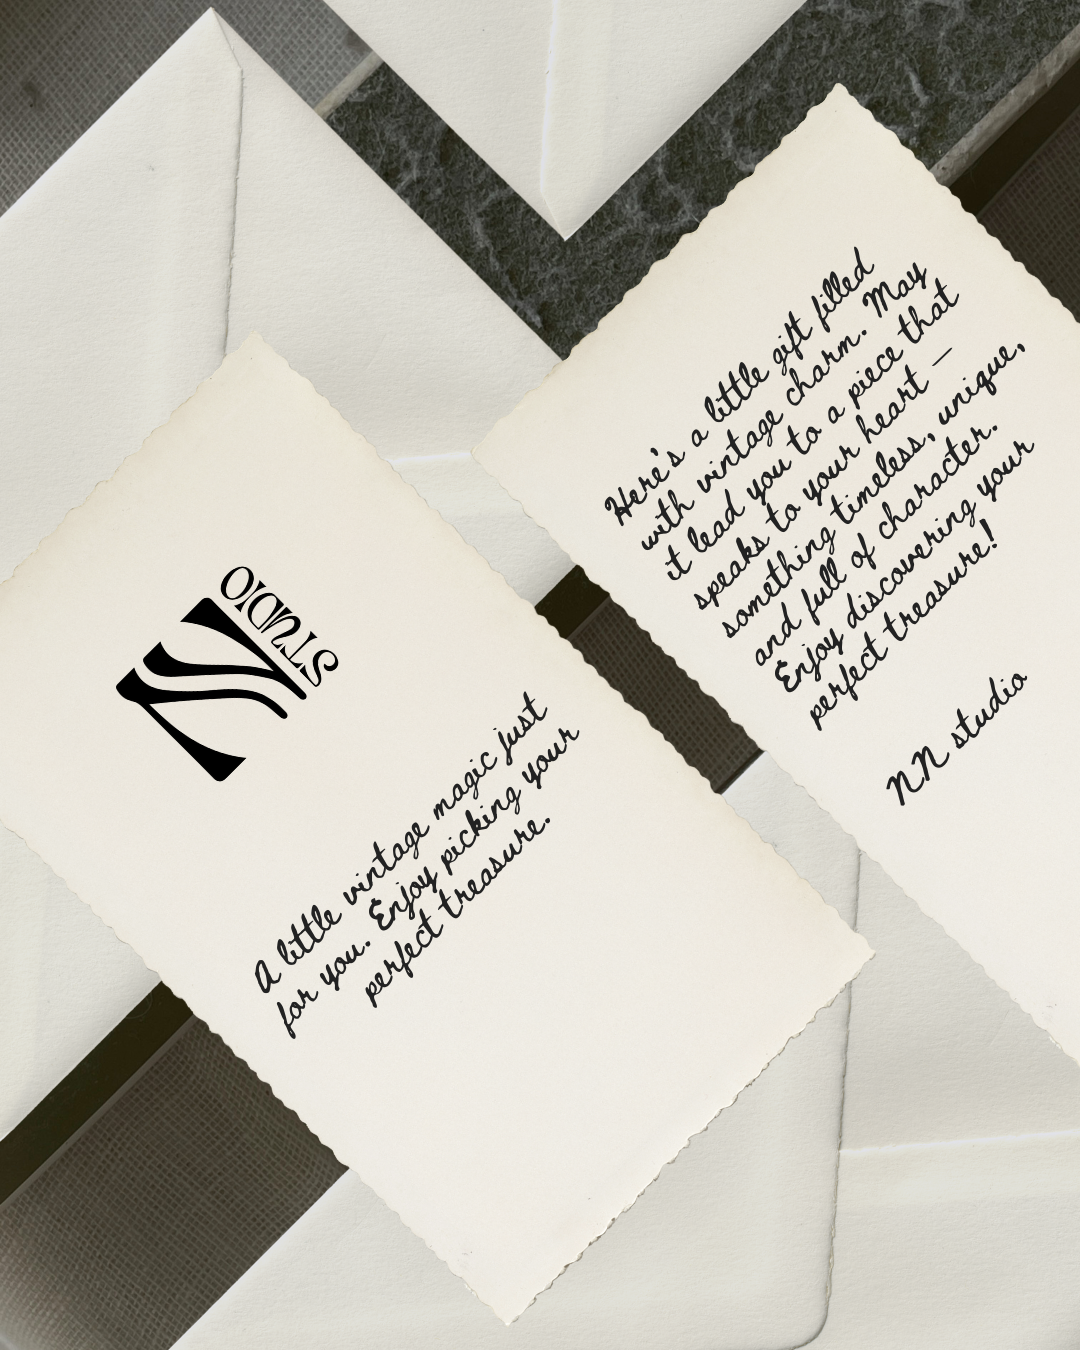 STUDIO
A little vintage magic just
for you. Enjoy picking your
perfect treasure.
Here's a little gift filled
with vintage charm. May
it lead you to a piece that
speaks to your heart —
something timeless, unique,
and full of character.
Enjoy discovering your
perfect treasure!
NN studio